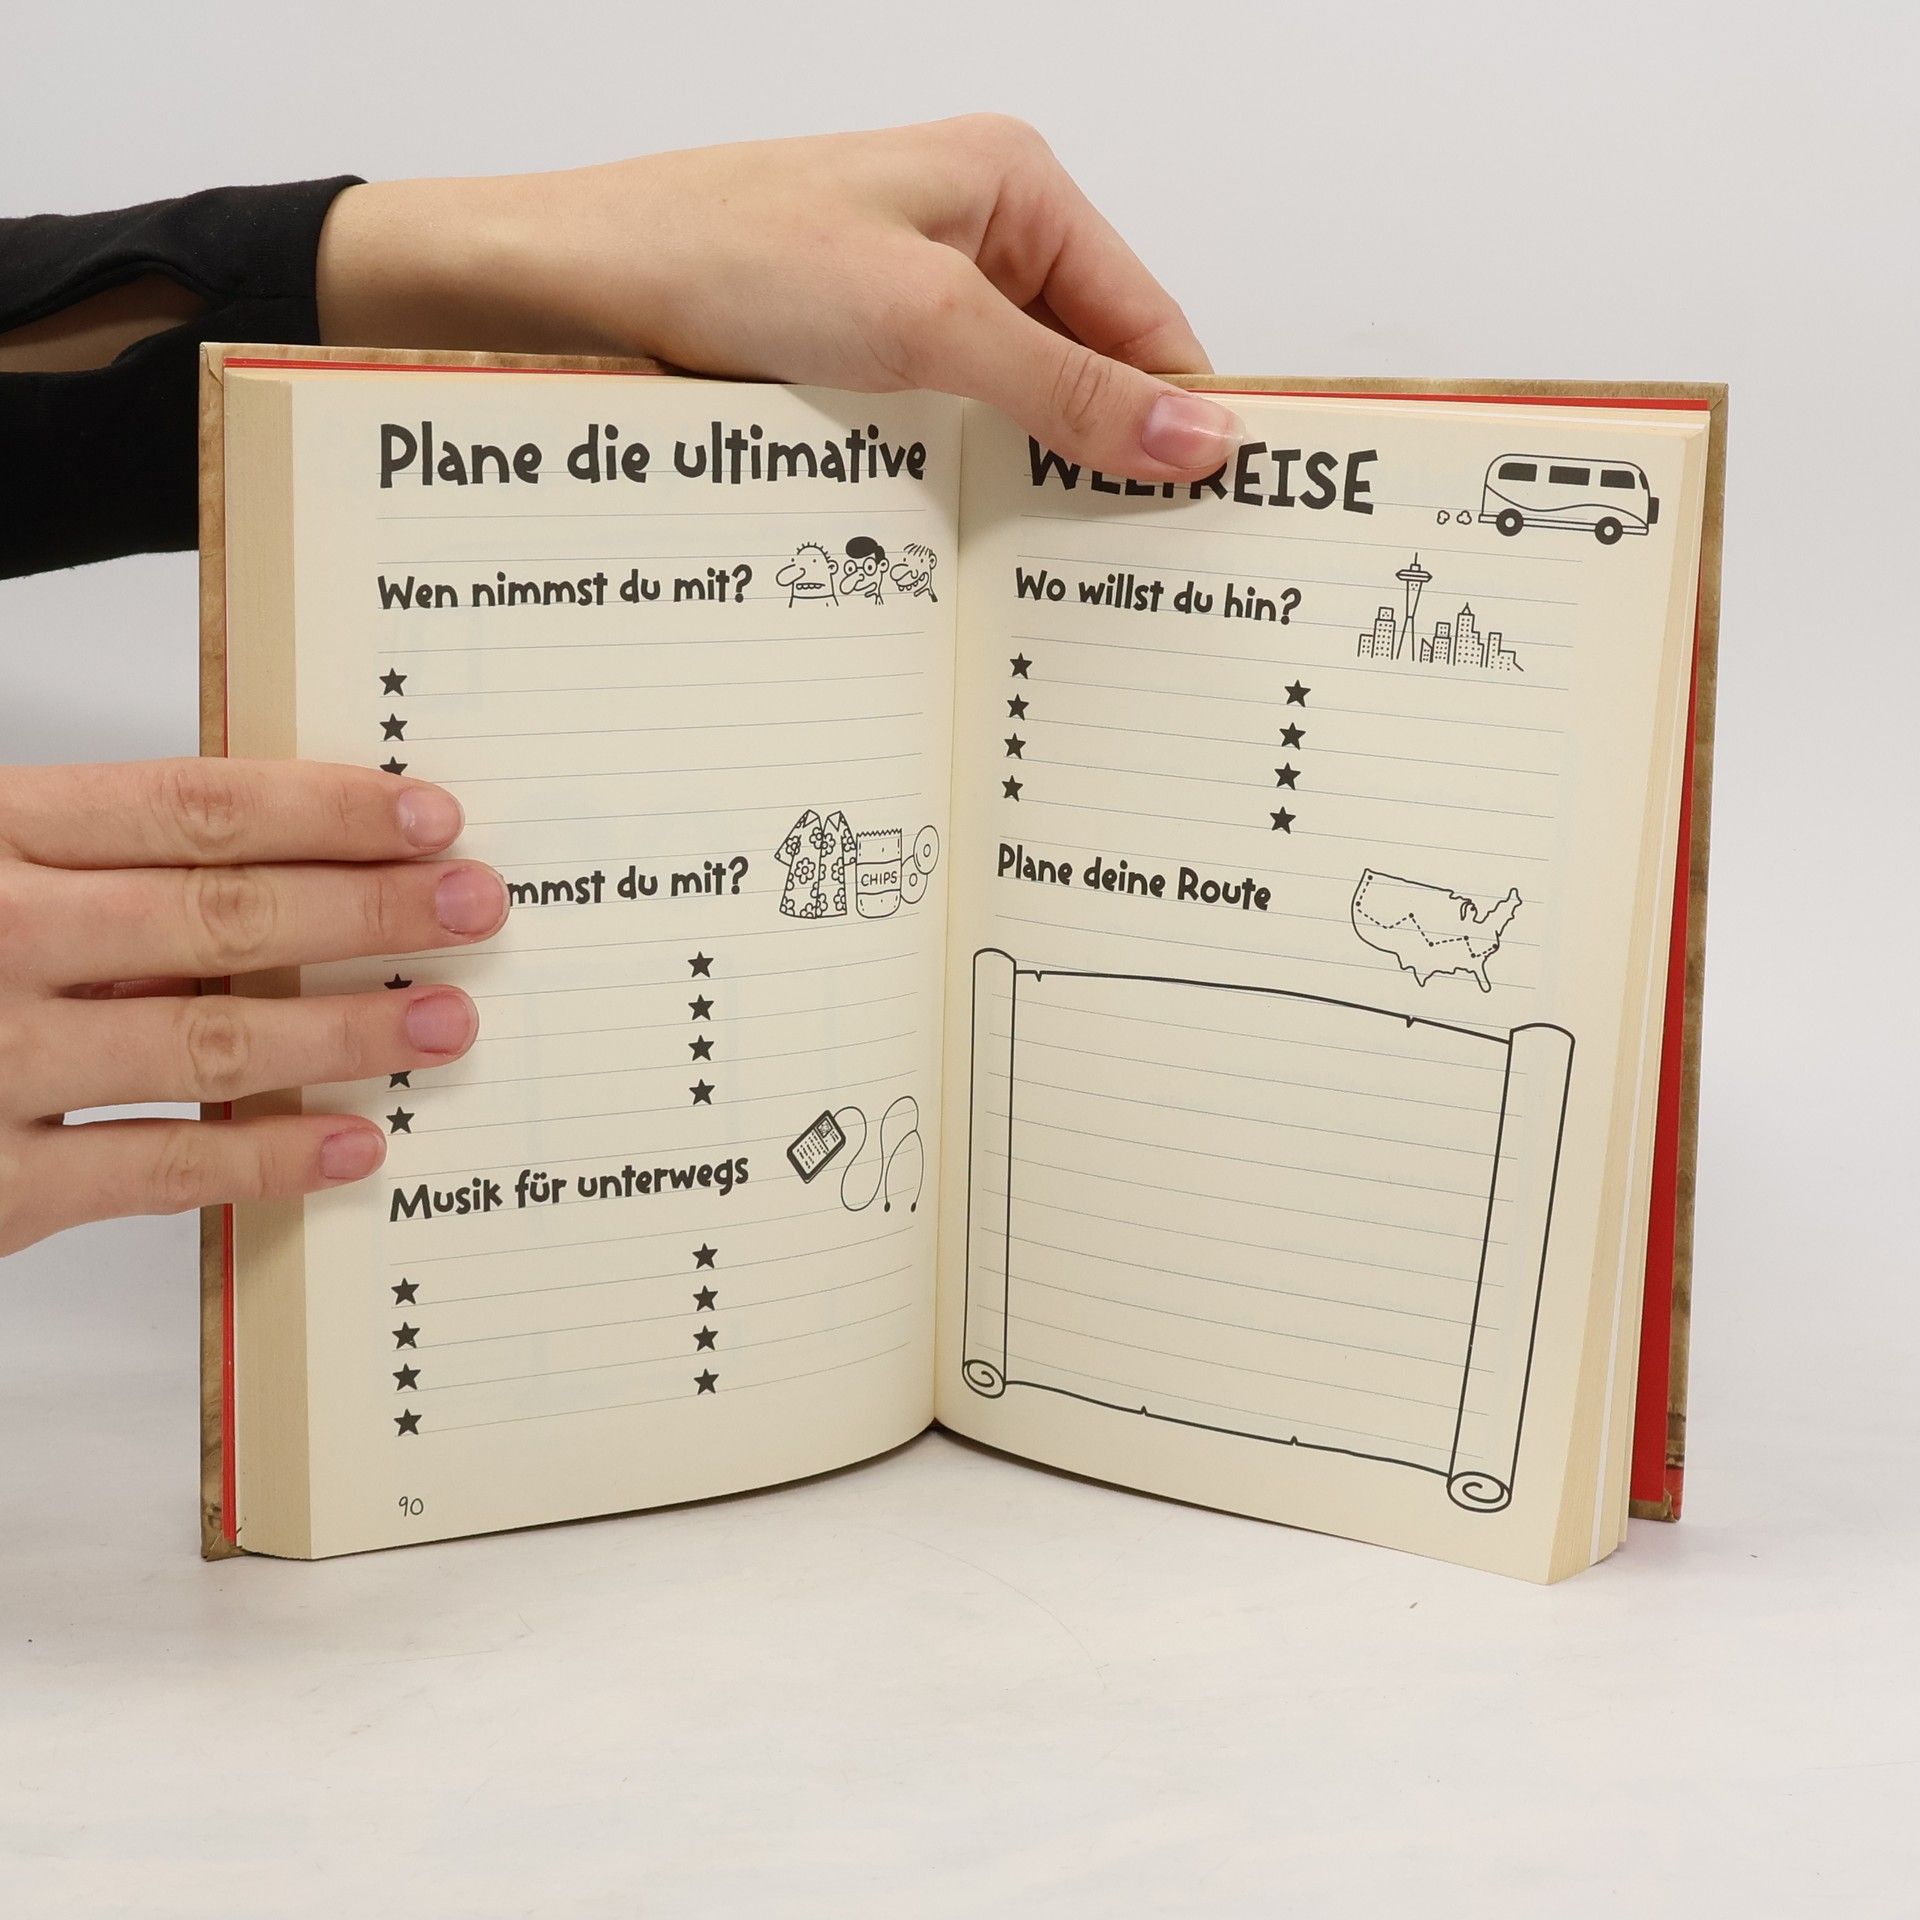 Plane die ultimative
WELTREISE
Wen nimmst du mit?
mmst du mit?
CHIPS
Musik für unterwegs
90
Wo willst du hin?
Plane deine Route